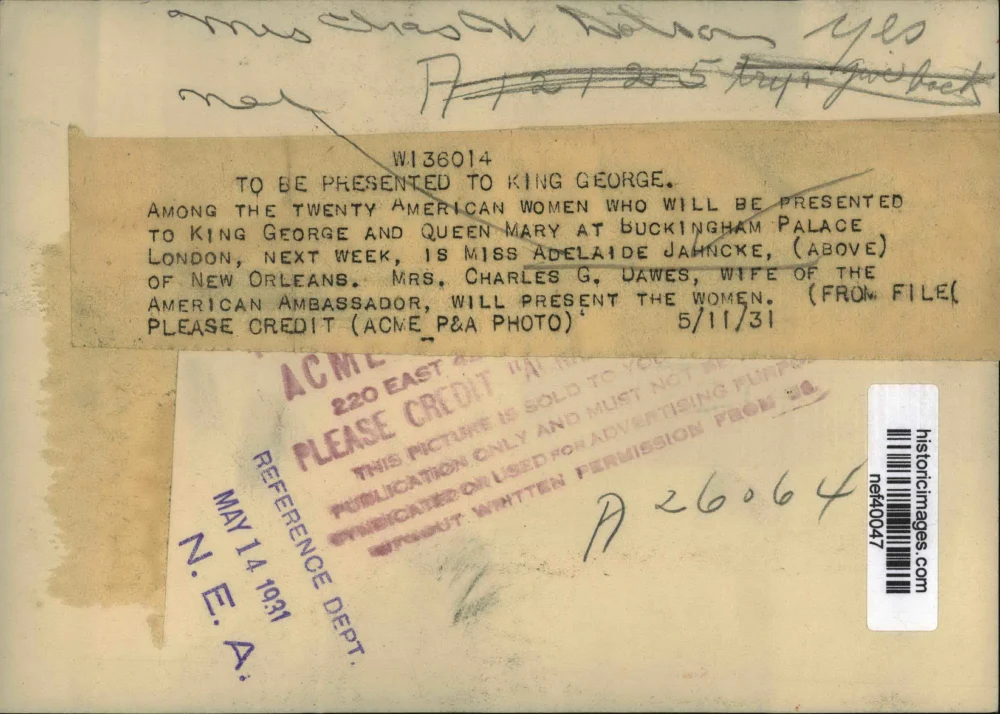 Mrs Chas N Nelson yes
A 12125 try & give back
net
W136014
TO BE PRESENTED TO KING GEORGE.
AMONG THE TWENTY AMERICAN WOMEN WHO WILL BE PRESENTED
TO KING GEORGE AND QUEEN MARY AT BUCKINGHAM PALACE
LONDON, NEXT WEEK, IS MISS ADELAIDE JAHNCKE, (ABOVE)
OF NEW ORLEANS. MRS. CHARLES G. DAWES, WIFE OF THE
AMERICAN AMBASSADOR, WILL PRESENT THE WOMEN. (FROM FILE(
PLEASE CREDIT (ACME P&A PHOTO) 5/11/31
ACME
220 EAST
PLEASE CREDIT "AC
THIS PICTURE IS SOLD TO YOU
PUBLICATION ONLY AND MUST NOT BE
SYNDICATED OR USED FOR ADVERTISING PURPOS
WITHOUT WRITTEN PERMISSION FROM US.
REFERENCE DEPT.
MAY 14 1931
N. E. A.
A 26064
historicimages.com
nef40047